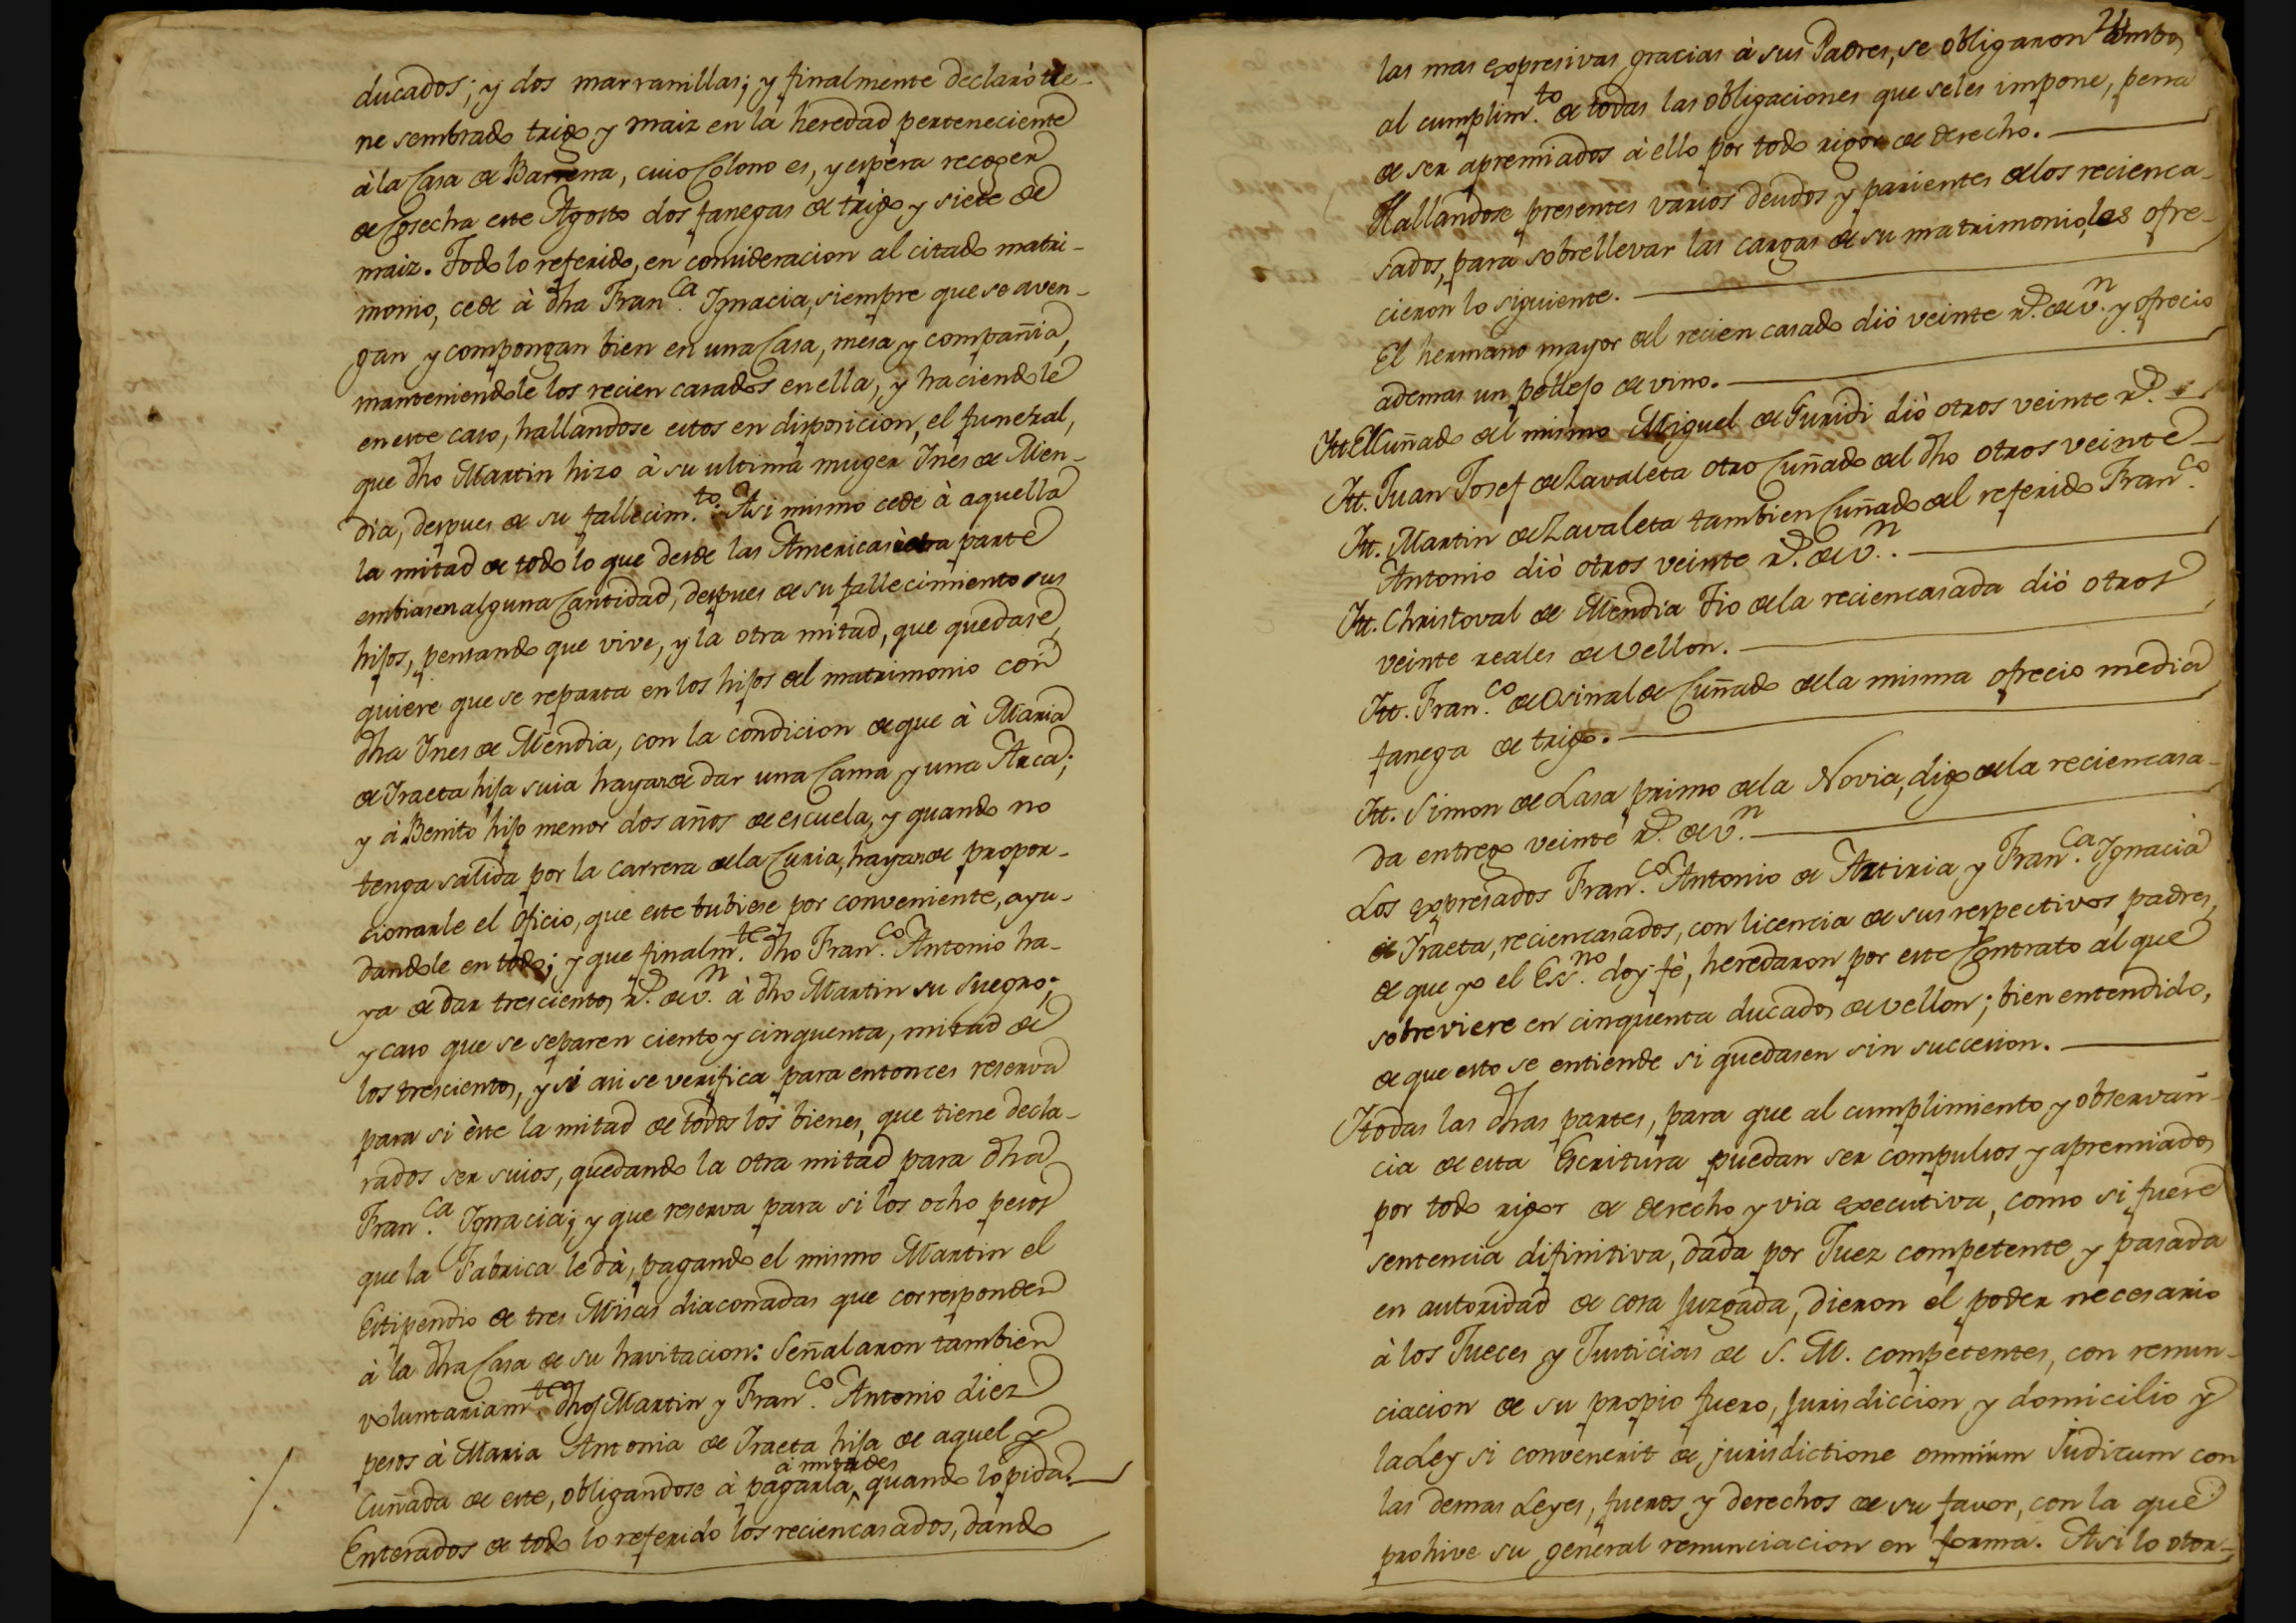 ducados; y dos marranillas; y finalmente declarò tie-
ne sembrado trigo y maiz en la heredad perteneciente
à la Casa de Barrena, cuio Colono es, y espera recoger
de Cosecha este Agosto dos fanegas de trigo y siete de
maiz. Todo lo referido, en consideracion al citado matri-
monio, cede à dha Fran.ca Ignacia, siempre que se aven-
gan y compongan bien en una Casa, mesa y compañia,
manteniendole los recien casados en ella, y haciendole
en este caso, hallandose estos en disposicion, el funeral,
que dho Martin hizo à su ultima muger Ines de Men-
dia, despues de su fallecim.to. Asi mismo cede à aquella
la mitad de todo lo que desde las Americas ù otra parte
embiasen alguna Cantidad, despues de su fallecimiento sus
hijos, pensando que vive, y la otra mitad, que quedase,
quiere que se reparta en los hijos del matrimonio con
dha Ines de Mendia, con la condicion de que à Maria
de Iraeta hija suia hayan de dar una Cama y una Arca;
y à Benito hijo menor dos años de escuela, y quando no
tenga salida por la carrera de la Curia, hayan de propor-
cionarle el oficio, que este tubiese por conveniente, ayu-
dandole en todo; y que finalm.te dho Fran.co Antonio ha-
ya de dar trescientos r.s de v.n à dho Martin su suegro;
y caso que se separen ciento y cinquenta, mitad de
los trescientos, y si asi se verifica para entonces reserva
para si èste la mitad de todos los bienes, que tiene decla-
rados ser suios, quedando la otra mitad para dha
Fran.ca Ignacia; y que reserva para si los ocho pesos
que la Fabrica le dà, pagando el mismo Martin el
Estipendio de tres Misas diaconadas que corresponden
à la dha Casa de su havitacion: Señalaron tambien
voluntariam.te dhos Martin y Fran.co Antonio diez
pesos à Maria Antonia de Iraeta hija de aquel y
à mitades
Cuñada de este, obligandose à pagarla, quando lo pida.
Enterados de todo lo referido los reciencasados, dando
24
las mas expresivas gracias à sus Padres, se obligaron ambos
al cumplim.to de todas las obligaciones que seles impone, pena
de ser apremiados à ello por todo rigor de derecho.
Hallandose presentes varios deudos y parientes de los recienca-
sados, para sobrellevar las cargas de su matrimonio, les ofre-
cieron lo siguiente.
El hermano mayor del recien casado diò veinte r.s de v.n y ofrecio
ademas un pellejo de vino.
Itt. El Cuñado del mismo Miguel de Guridi diò otros veinte r.s
Itt. Juan Josef de Zavaleta otro Cuñado del dho otros veinte
Itt. Martin de Zavaleta tambien Cuñado del referido Fran.co
Antonio diò otros veinte r.s de v.n.
Itt. Christoval de Mendia Tio de la reciencasada diò otros
veinte reales de Vellon.
Itt. Fran.co de Osinalde Cuñado de la misma ofrecio media
fanega de trigo.
Itt. Simon de Lasa primo de la Novia, digo de la reciencasa-
da entregò veinte r.s de v.n
Los expresados Fran.co Antonio de Artiria y Fran.ca Ignacia
de Iraeta, reciencasados, con licencia de sus respectivos padres,
de que yo el Ess.no doy fè, heredaron por este Contrato al que
sobreviere en cinquenta ducados de vellon; bien entendido,
de que esto se entiende si quedasen sin succesion.
I todas las dhas partes, para que al cumplimiento y observan-
cia de esta Escritura puedan ser compulsos y apremiados
por todo rigor de derecho y via executiva, como si fuere
sentencia difinitiva, dada por Juez competente y pasada
en autoridad de cosa juzgada, dieron el poder necesario
à los Jueces y Justicias de S. M. competentes, con renun-
ciacion de su propio fuero, jurisdiccion y domicilio y
la Ley si convenerit de jurisdictione omnium Judicum con
las demas Leyes, fueros y derechos de su favor, con la que
prohive su general renunciacion en forma. Asi lo otor-